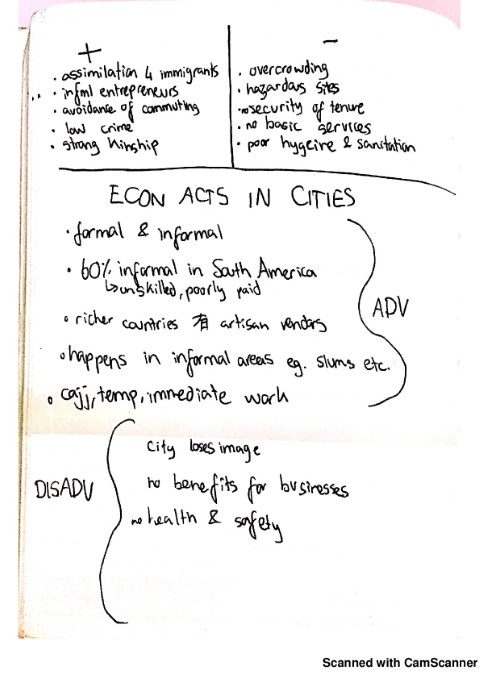 +
. assimilation 4 immigrants
. infml entrepreneurs
. avoidance of commuting
. low crime
. strong kinship
-
. overcrowding
. hazardous sites
. no security of tenure
. no basic services
. poor hygeine & sanitation
ECON ACTS IN CITIES
. formal & informal
. 60% informal in South America
↳ unskilled, poorly paid
. richer countries 有 artisan vendors
. happens in informal areas eg. slums etc.
temp, immediate work
ADV
DISADV
City loses image
no benefits for businesses
no health & safety
Scanned with CamScanner